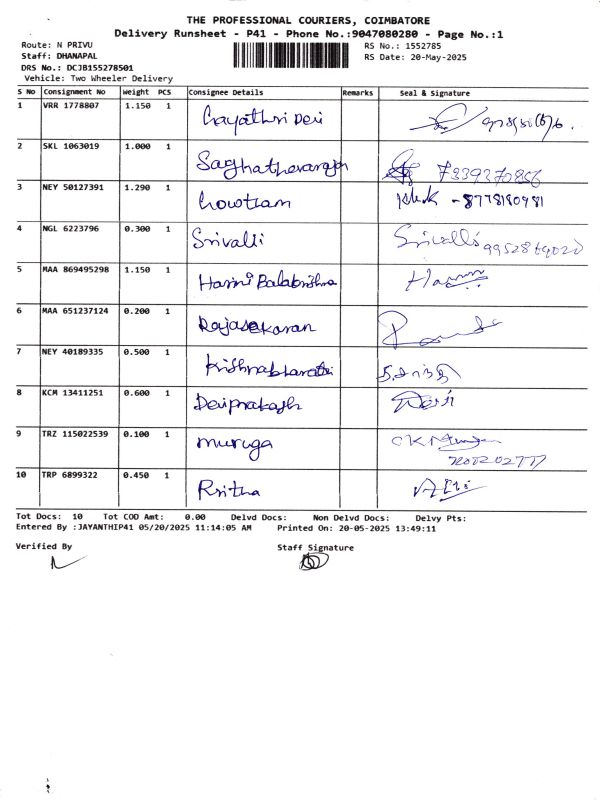 THE PROFESSIONAL COURIERS, COIMBATORE
Delivery Runsheet - P41 - Phone No.:9047080280 - Page No.:1
Route: N PRIVU RS No.: 1552785
Staff: DHANAPAL RS Date: 20-May-2025
DRS No.: DCJB155278501
Vehicle: Two Wheeler Delivery
S No Consignment No Weight PCS Consignee Details Remarks Seal & Signature
1 VRR 1778807 1.150 1 Gayathri Devi
2 SKL 1063019 1.000 1 7339370856
3 NEY 50127391 1.290 1 Gowtham -8778190981
4 NGL 6223796 0.300 1 Srivalli Srivalli
5 MAA 869495298 1.150 1 Harini Balakrishna
6 MAA 651237124 0.200 1 Rajasekaran
7 NEY 40189335 0.500 1 Krishnabharathi
8 KCM 13411251 0.600 1 Deviprakash
9 TRZ 115022539 0.100 1 muruga
10 TRP 6899322 0.450 1
Tot Docs: 10 Tot COD Amt: 0.00 Delvd Docs: Non Delvd Docs: Delvy Pts:
Entered By :JAYANTHIP41 05/20/2025 11:14:05 AM Printed On: 20-05-2025 13:49:11
Verified By Staff Signature